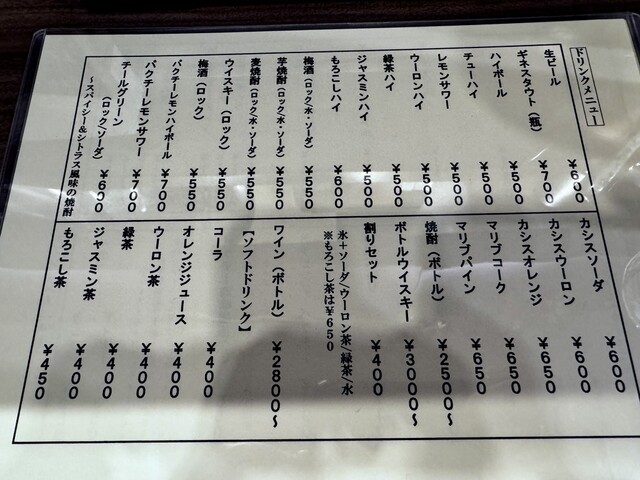 ドリンクメニュー
生ビール ¥600
ギネスタウト(瓶) ¥700
ハイボール ¥500
チューハイ ¥500
レモンサワー ¥500
ウーロンハイ ¥500
緑茶ハイ ¥500
ジャスミンハイ ¥500
もろこしハイ ¥600
梅酒(ロック/水・ソーダ) ¥550
芋焼酎(ロック/水・ソーダ) ¥550
麦焼酎(ロック/水・ソーダ) ¥550
ウイスキー(ロック) ¥550
梅酒(ロック) ¥550
パクチーレモンハイボール ¥700
パクチーレモンサワー ¥700
チールグリーン(ロック/ソーダ) ¥600
~スパイシー&シトラス風味の焼酎
カシスソーダ ¥600
カシスウーロン ¥600
カシスオレンジ ¥650
マリブコーク ¥650
マリブパイン ¥650
焼酎(ボトル) ¥2500~
ボトルウイスキー ¥3000~
割りセット ¥400
氷+ソーダ/ウーロン茶/緑茶/水
※もろこし茶は¥650
ワイン(ボトル) ¥2800~
【ソフトドリンク】
コーラ ¥400
オレンジジュース ¥400
ウーロン茶 ¥400
緑茶 ¥400
ジャスミン茶 ¥400
もろこし茶 ¥450